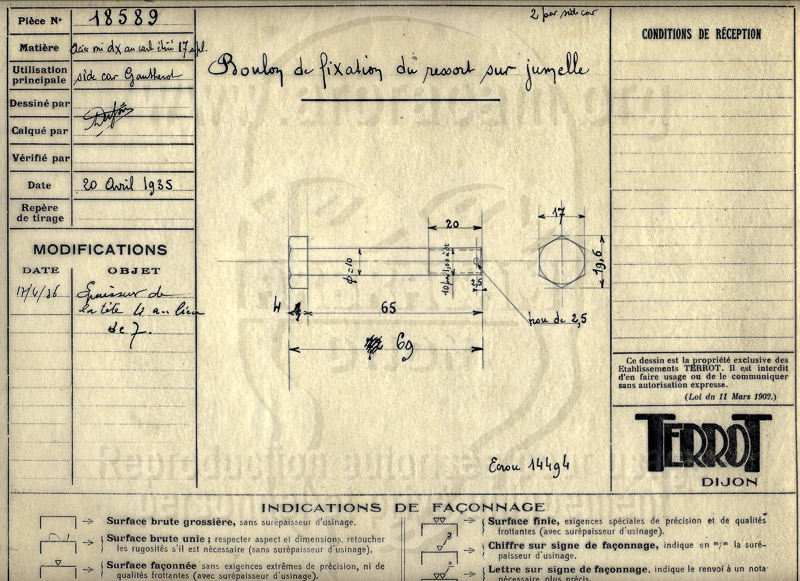 Pièce N° 18589
Matière Acier mi dx au carb étiré 17 s. pl.
Utilisation
principale side car Gautherot
Dessiné par
Calqué par
Vérifié par
Date 20 Avril 1935
Repère
de tirage
MODIFICATIONS
DATE OBJET
17/4/36 Epaisseur de
la tête 4 au lieu
de 7.
2 par side car
Boulon de fixation du ressort sur jumelle
20
17
19,6
φ=10
10 pas 1,00
2,5
4
65
trou de 2,5
69
Ecrou 14494
CONDITIONS DE RÉCEPTION
Ce dessin est la propriété exclusive des
Etablissements TERROT. Il est interdit
d'en faire usage ou de le communiquer
sans autorisation expresse.
(Loi du 11 Mars 1902.)
TERROT
DIJON
INDICATIONS DE FAÇONNAGE
Surface brute grossière, sans surépaisseur d'usinage.
Surface brute unie ; respecter aspect et dimensions, retoucher
les rugosités s'il est nécessaire (sans surépaisseur d'usinage).
Surface façonnée sans exigences extrêmes de précision, ni de
qualités frottantes (avec surépaisseur d'usinage).
Surface finie, exigences spéciales de précision et de qualités
frottantes (avec surépaisseur d'usinage).
2
Chiffre sur signe de façonnage, indique en m/m la suré-
paisseur d'usinage.
Lettre sur signe de façonnage, indique le renvoi à un nota
nécessaire plus précis.
Reproduction autorisée